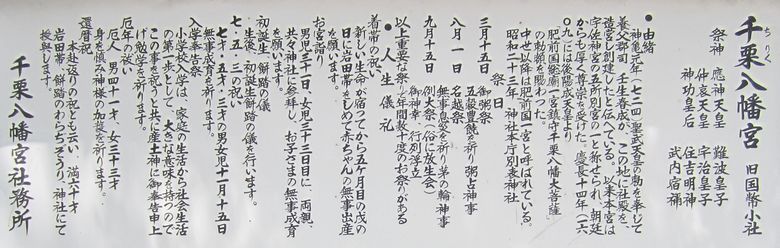 千栗八幡宮 旧国幣小社
ちりく
祭神 應神天皇 難波皇子
仲哀天皇 宇治皇子
神功皇后 住吉明神
武内宿祢
●由緒
神亀元年(七二四)聖武天皇の勅を奉じて
養父郡司 壬生春成が、この地に社殿を、
造営し創建したと伝えている。以来本宮は
宇佐神宮の五所別宮の一と称せられ、朝廷
からも厚く尊崇を受けた。慶長十四年(一六
〇九)には後陽成天皇より
「肥前国総廟一宮鎮守千栗八幡大菩薩」
の勅額を賜わった。
中世以降は肥前国一宮と呼ばれている。
昭和二十三年、神社本庁別表神社
祭日
三月十五日 御粥祭
五穀豊饒を祈り粥占神事
八月一日 名越祭
無事息災を祈り茅の輪神事
九月十五日 例大祭(俗に放生会)
御神幸、行列浮立
以上重要な祭り、年間数十度のお祭りがある
●人生儀礼
着帯の祝い
新しい生命が宿ってから五ケ月目の戌の
日に岩田帯をしめて赤ちゃんの無事出産
を願います。
お宮詣り
男児三十一日、女児三十三日目に、両親、
共々神社に参拝し、お子さまの無事成育
を願います。
初誕生餅踏の儀
生後、初誕生餅踏の儀を行います。
七・五・三の祝い
七才、五才、三才の男女児十一月十五日
無事成育を祈ります。
入学奉告祭
小学校入学は、家庭の生活から社会生活
の第一歩として、大きな意味を持つので
この事を祝うと共に産土神に御奉告申上
げ勉学を祈ります。
厄年の祓い
厄人 男 四十一才、女 三十三才
身を慎み神様の加護を祈ります。
還暦祝
本卦返りの祝とも云い、満六十才
岩田帯、餅踏のわらぞうり、神社にて
授与します。
千栗八幡宮社務所